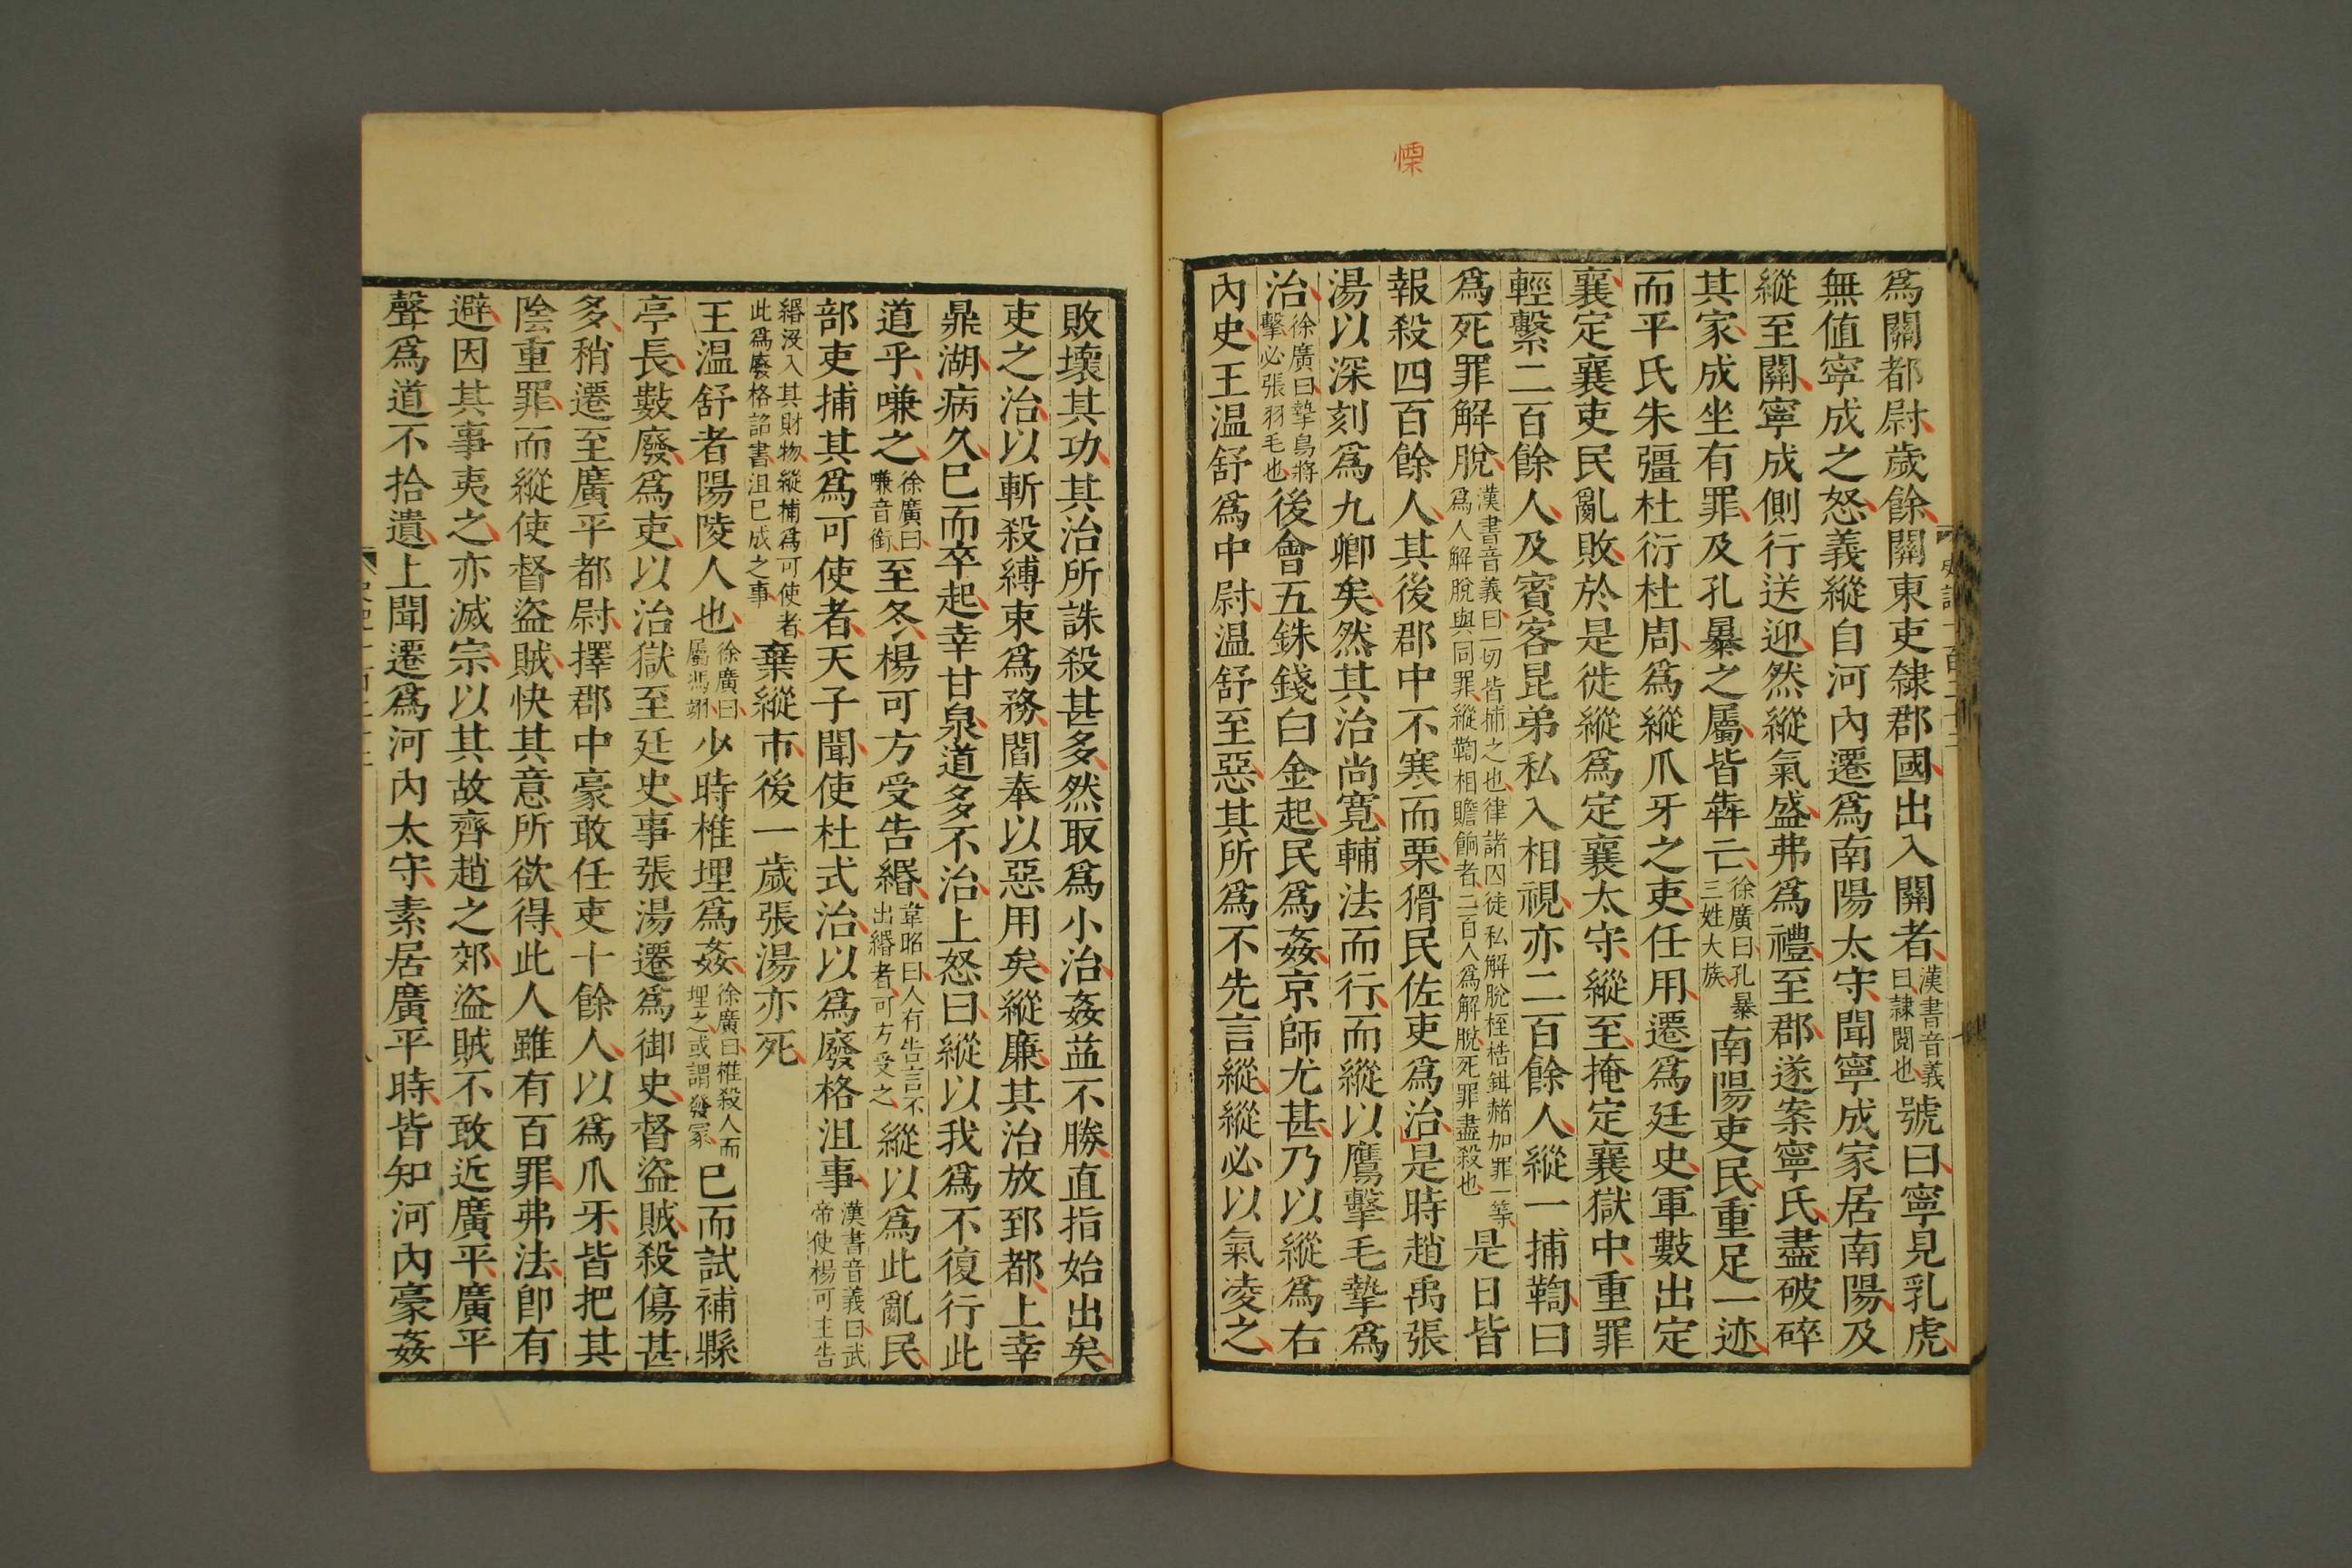 慄
爲關都尉歲餘關東吏隸郡國出入關者漢書音義曰隸閱也號曰寧見乳虎
無値寧成之怒義縱自河內遷爲南陽太守聞寧成家居南陽及
縱至關寧成側行送迎然縱氣盛弗爲禮至郡遂案寧氏盡破碎
其家成坐有罪及孔暴之屬皆犇亡徐廣曰孔暴三姓大族南陽吏民重足一迹
而平氏朱彊杜衍杜周爲縱爪牙之吏任用遷爲廷史軍數出定
襄定襄吏民亂敗於是徙縱爲定襄太守縱至掩定襄獄中重罪
輕繫二百餘人及賓客昆弟私入相視亦二百餘人縱一捕鞫曰
爲死罪解脫漢書音義曰一切皆捕之也律諸囚徒私解脫桎梏鉗赭加罪一等爲人解脫與同罪縱鞫相贍餉者二百人爲解脫死罪盡殺也是日皆
報殺四百餘人其後郡中不寒而栗猾民佐吏爲治是時趙禹張
湯以深刻爲九卿矣然其治尚寬輔法而行而縱以鷹擊毛摯爲
治徐廣曰摯鳥將擊必張羽毛也後會五銖錢白金起民爲姦京師尤甚乃以縱爲右
內史王溫舒爲中尉溫舒至惡其所爲不先言縱縱必以氣凌之
敗壞其功其治所誅殺甚多然取爲小治姦益不勝直指始出矣
吏之治以斬殺縛束爲務閻奉以惡用矣縱廉其治放郅都上幸
鼎湖病久巳而卒起幸甘泉道多不治上怒曰縱以我爲不復行此
道乎嗛之徐廣曰嗛音銜至冬楊可方受告緡韋昭曰人有告言不出緡者可方受之縱以爲此亂民
部吏捕其爲可使者天子聞使杜式治以爲廢格沮事漢書音義曰武帝使楊可主告
緡沒入其財物縱捕爲可使者此爲廢格詔書沮巳成之事棄縱市後一歲張湯亦死
王溫舒者陽陵人也徐廣曰屬馮翊少時椎埋爲姦徐廣曰椎殺人而埋之或謂發冢巳而試補縣
亭長數廢爲吏以治獄至廷史事張湯遷爲御史督盜賊殺傷甚
多稍遷至廣平都尉擇郡中豪敢任吏十餘人以爲爪牙皆把其
陰重罪而縱使督盜賊快其意所欲得此人雖有百罪弗法卽有
避因其事夷之亦滅宗以其故齊趙之郊盜賊不敢近廣平廣平
聲爲道不拾遺上聞遷爲河內太守素居廣平時皆知河內豪姦